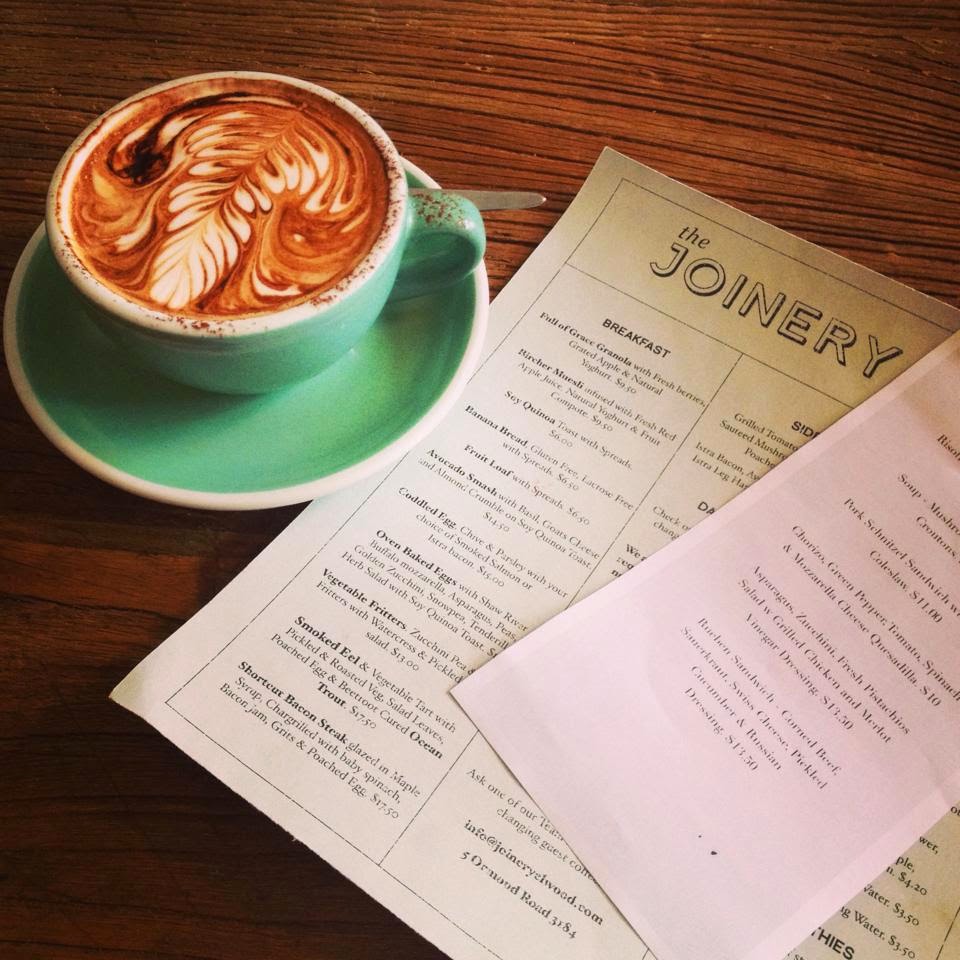 the
JOINERY
BREAKFAST
Full of Grace Granola with Fresh berries,
Grated Apple & Natural
Yoghurt. $9.50
Bircher Muesli infused with Fresh Red
Apple Juice, Natural Yoghurt & Fruit
Compote. $9.50
Soy Quinoa Toast with Spreads.
$6.00
Banana Bread, Gluten Free, Lactose Free
with Spreads. $6.50
Fruit Loaf with Spreads. $6.50
Avocado Smash with Basil, Goats Cheese
and Almond Crumble on Soy Quinoa Toast.
$14.50
Coddled Egg, Chive & Parsley with your
choice of Smoked Salmon or
Istra bacon. $15.00
Oven Baked Eggs with Shaw River
Buffalo mozzarella, Asparagus, Peas,
Golden Zucchini, Snowpea, Tendrill
Herb Salad with Soy Quinoa Toast.
Vegetable Fritters, Zucchini Pea &
Fritters with Watercress & Pickled
salad. $13.00
Smoked Eel & Vegetable Tart with
Pickled & Roasted Veg, Salad Leaves,
Poached Egg & Beetroot Cured Ocean
Trout. $17.50
Shortcut Bacon Steak glazed in Maple
Syrup, Chargrilled with baby spinach,
Bacon jam, Grits & Poached Egg. $17.50
SIDE
Grilled Tomato
Sauteed Mushr
Poache
Istra Bacon, Av
Istra Leg Ham
DA
Check o
chang
We
Ask one of our Tea
changing guest coffe
info@joineryelwood.com
5 Ormond Road 3184
Soup - Mushro
Croutons,
Pork Schnitzel Sandwich w
Coleslaw. $11.00
Chorizo, Green Pepper, Tomato, Spinach
& Mozzarella Cheese Quesadilla. $10
Asparagus, Zucchini, Fresh Pistachios
Salad w Grilled Chicken and Merlot
Vinegar Dressing. $13.50
Rueben Sandwich - Corned Beef,
Sauerkraut, Swiss Cheese, Pickled
Cucumber & Russian
Dressing. $13.50
ple,
n. $4.20
Water. $3.50
ng Water. $3.50
THIES